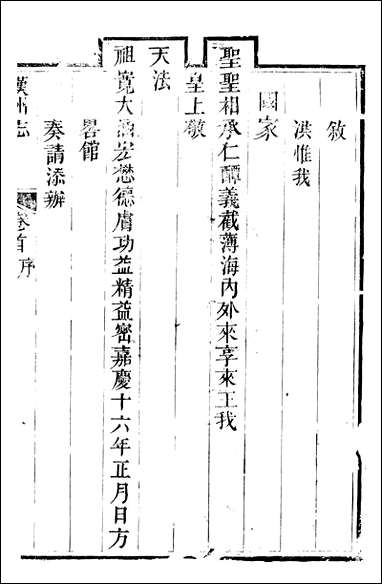 敘
洪惟我
國家
聖聖相承仁漸義截薄海內外來享來王我
皇上敬
天法
祖寬大宏懋德膚功益精益密嘉慶十六年正月日方
畧館
奏請添辦
漢州志
卷首序